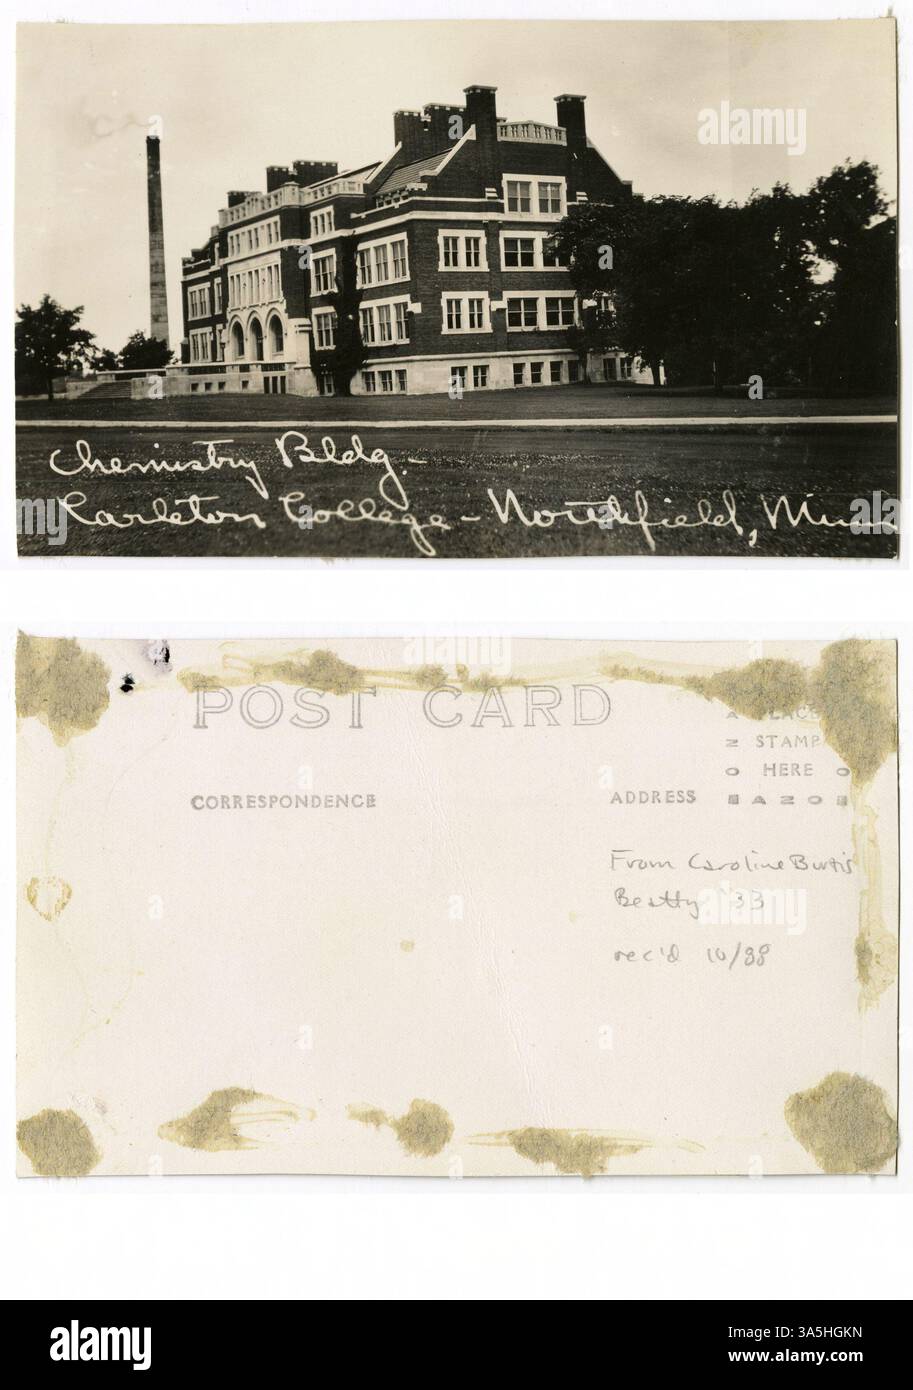 alamy
Chemistry Bldg. -
Carleton College - Northfield, Minn
alamy
alamy
POST CARD
PLACE
STAMP
HERE
CORRESPONDENCE
ADDRESS
AZO
From Caroline Burtis
Beatty '33
rec'd 10/88
alamy
Image ID: 3A5HGKN
www.alamy.com